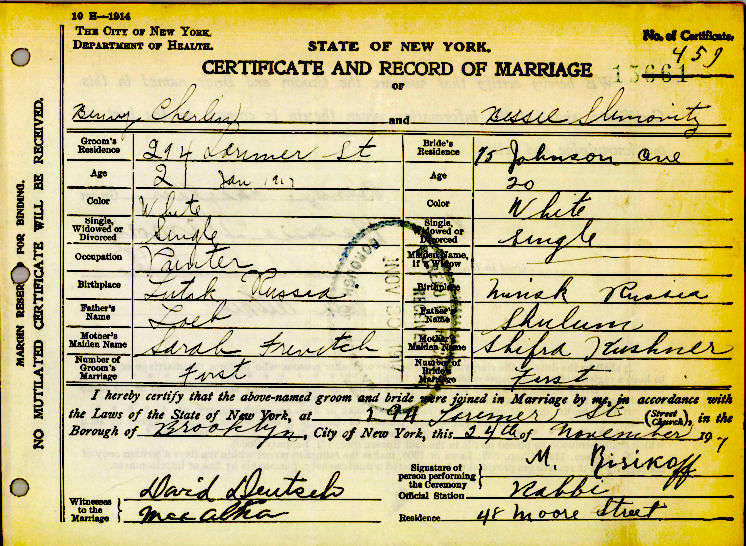 10 H—1914
THE CITY OF NEW YORK.
DEPARTMENT OF HEALTH.
STATE OF NEW YORK.
No. of Certificate.
459
15661
CERTIFICATE AND RECORD OF MARRIAGE
OF
Benny Cherlin and Bessie Slimovitz
Groom's Residence 294 Lorimer St
Bride's Residence 75 Johnson ave
Age 21 Jan 1917
Age 20
Color White
Color White
Single, Widowed or Divorced Single
Single, Widowed or Divorced single
Occupation Painter
Maiden Name, if a Widow
Birthplace Lutsk Russia
Birthplace Minsk Russia
Father's Name Loeb
Father's Name Shulum
Mother's Maiden Name Sarah
Mother's Maiden Name Shifra Kushner
Number of Groom's Marriage First
Number of Bride's Marriage First
I hereby certify that the above-named groom and bride were joined in Marriage by me, in accordance with
the Laws of the State of New York, at 294 Lorimer St (Street Church), in the
Borough of Brooklyn, City of New York, this 24th of November 1917
Signature of person performing the Ceremony M. Risikoff
Witnesses to the Marriage David Deutsch
Official Station Rabbi
Residence 48 Moore Street
MARGIN RESERVED FOR BINDING.
NO MUTILATED CERTIFICATE WILL BE RECEIVED.
NOV